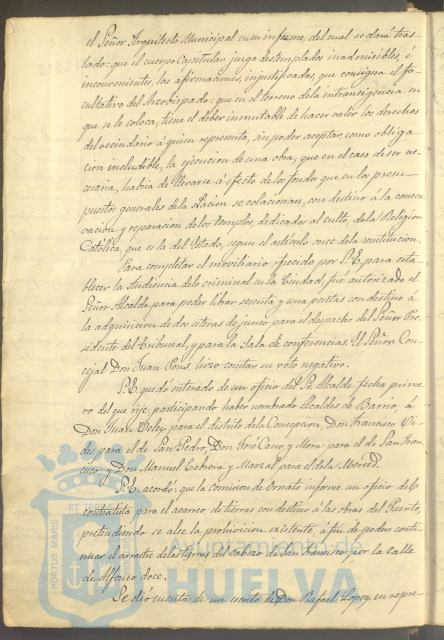 el Señor Arquitecto Municipal cuyo informe, del cual se dará tras-
lado: que el cuerpo Capitular juzga destemplados inadmisibles, é
inconvenientes, las afirmaciones, injustificadas, que consigna el fa-
cultativo del Arzobispado: que en el terreno de la intransigencia en
que se le coloca, tiene el deber inmutable de hacer valer los derechos
del vecindario á quien representa, sin poder aceptar, como obliga
cion ineludible, la ejecucion de una obra, que en el caso de ser ne-
cesaria, habia de llevarse á efecto de los fondos que en los presu-
puestos generales de la Nacion se colacionan, con destino á la conser
vacion y reparacion de los templos, dedicados al culto, de la Religion
Catolica, que es la del Estado, segun el articulo once de la constitucion.
Para completar el moviliario ofrecido por S. E. para esta
blecer la Audiencia de lo criminal en la Ciudad, fué autorizado el
Señor Alcalde para poder librar sesenta y una pesetas con destino á
la adquisicion de dos esteras de junco para el despacho del Señor Pre
sidente del Tribunal, y para la Sala de conferencias. El Señor Con-
cejal Don Juan Pons, hizo constar su voto negativo.
S. E. quedó enterado de un oficio del Sr. Alcalde fecha prime-
ro del que rije, participando haber nombrado Alcaldes de Barrio, á
Don Juan Velez para el distrito de la Concepcion, Don Francisco Vi-
des para el de San Pedro, Don José Cano y Mora para el de San Fran-
cisco y Don Manuel Cabrera y Marzal para el de la Merced.
S. E. acordó: que la Comision de Ornato informe un oficio del
contratista para el acarreo de tierras con destino á las obras del Puerto,
pretendiendo se alce la prohivicion existente, á fin de poder conti-
nuar el arrastre de las tierras del Cabezo de San Francisco por la Calle
de Alfonso doce.
Se dió cuenta de un escrito de Don Rafael Lopez en repre-
PORTUS MARIS ET
Ayuntamiento de
HUELVA